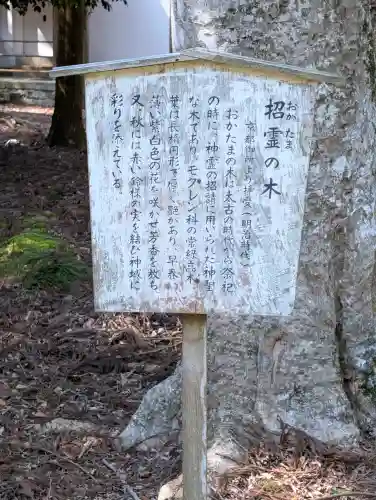 招霊の木
おがたま
京都御所より拝受(明治時代)
おがたまの木は太古の時代から祭祀
の時に、神霊の招請に用いられた神聖
な木であり、モクレン科の常緑高木
葉は長楕円形で厚く、艶があり、早春
薄い黄白色の花を咲かせ芳香を放ち
又、秋には赤い鈴様の実を結び神域に
彩りを添えている。